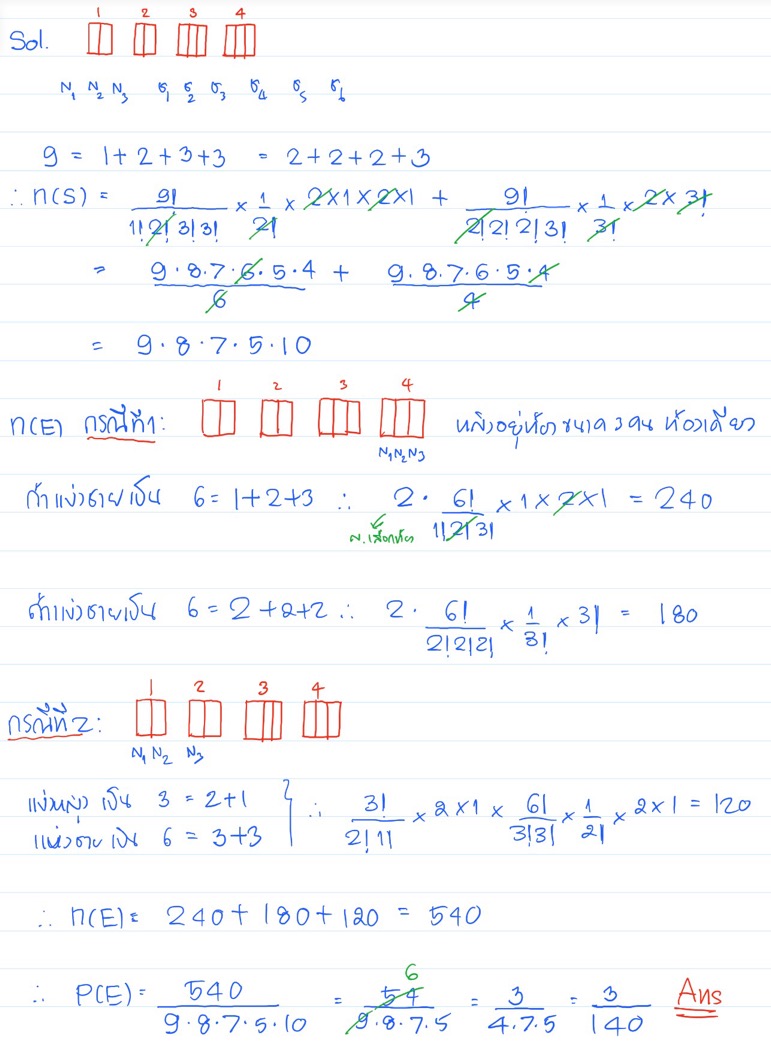 1 2 3 4
Sol.
N₁ N₂ N₃ ช₁ ช₂ ช₃ ช₄ ช₅ ช₆
9 = 1+2+3+3 = 2+2+2+3
∴ n(S) = 9!/(1!2!3!3!) × 1/2! × 2×1×2×1 + 9!/(2!2!2!3!) × 1/3! × 2×3!
= (9·8·7·6·5·4)/6 + (9·8·7·6·5·4)/4
= 9·8·7·5·10
1 2 3 4
n(E) กรณีที่1: หญิงอยู่ห้องขนาด 3 คน ห้องเดียว
N₁N₂N₃
ถ้าแบ่งชายเป็น 6 = 1+2+3 ∴ 2· 6!/(1!2!3!) × 1×2×1 = 240
ญ.เลือกห้อง
ถ้าแบ่งชายเป็น 6 = 2+2+2 ∴ 2· 6!/(2!2!2!) × 1/3! × 3! = 180
1 2 3 4
กรณีที่2:
N₁ N₂ N₃
แบ่งหญิง เป็น 3 = 2+1
แบ่งชาย เป็น 6 = 3+3
} ∴ 3!/(2!1!) × 2×1 × 6!/(3!3!) × 1/2! × 2×1 = 120
∴ n(E) = 240+180+120 = 540
∴ P(E) = 540/(9·8·7·5·10) = 54/(9·8·7·5) = 3/(4·7·5) = 3/140 Ans
6